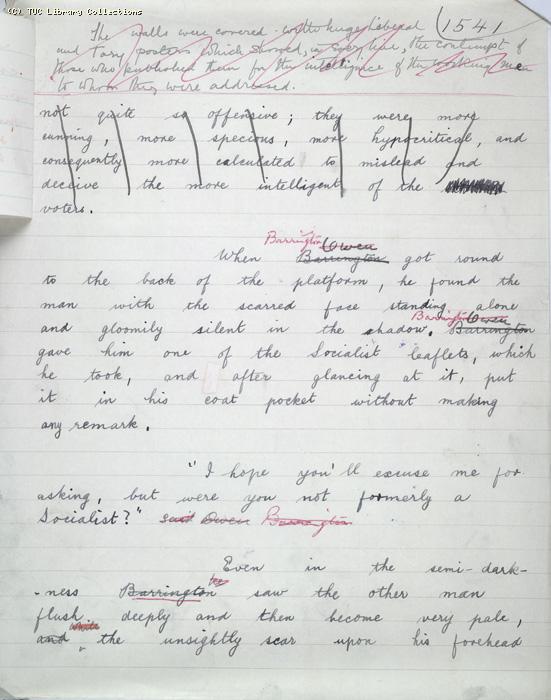 (C) TUC Library Collections
1541
The walls were covered with huge Liberal
and Tory posters which showed, in every line, the contempt of
those who published them for the intelligence of the working men
to whom they were addressed.
not quite so offensive; they were more
cunning, more specious, more hypocritical, and
consequently more calculated to mislead and
deceive the more intelligent of the
voters.
Barrington Owen
When Barrington got round
to the back of the platform, he found the
man with the scarred face standing alone
Barrington Owen
and gloomily silent in the shadow. Barrington
gave him one of the Socialist leaflets, which
he took, and after glancing at it, put
it in his coat pocket without making
any remark.
"I hope you'll excuse me for
asking, but were you not formerly a
Socialist?" said Owen Barrington
Even in the semi-dark-
-ness Barrington saw the other man
flush deeply and then become very pale,
while
and the unsightly scar upon his forehead